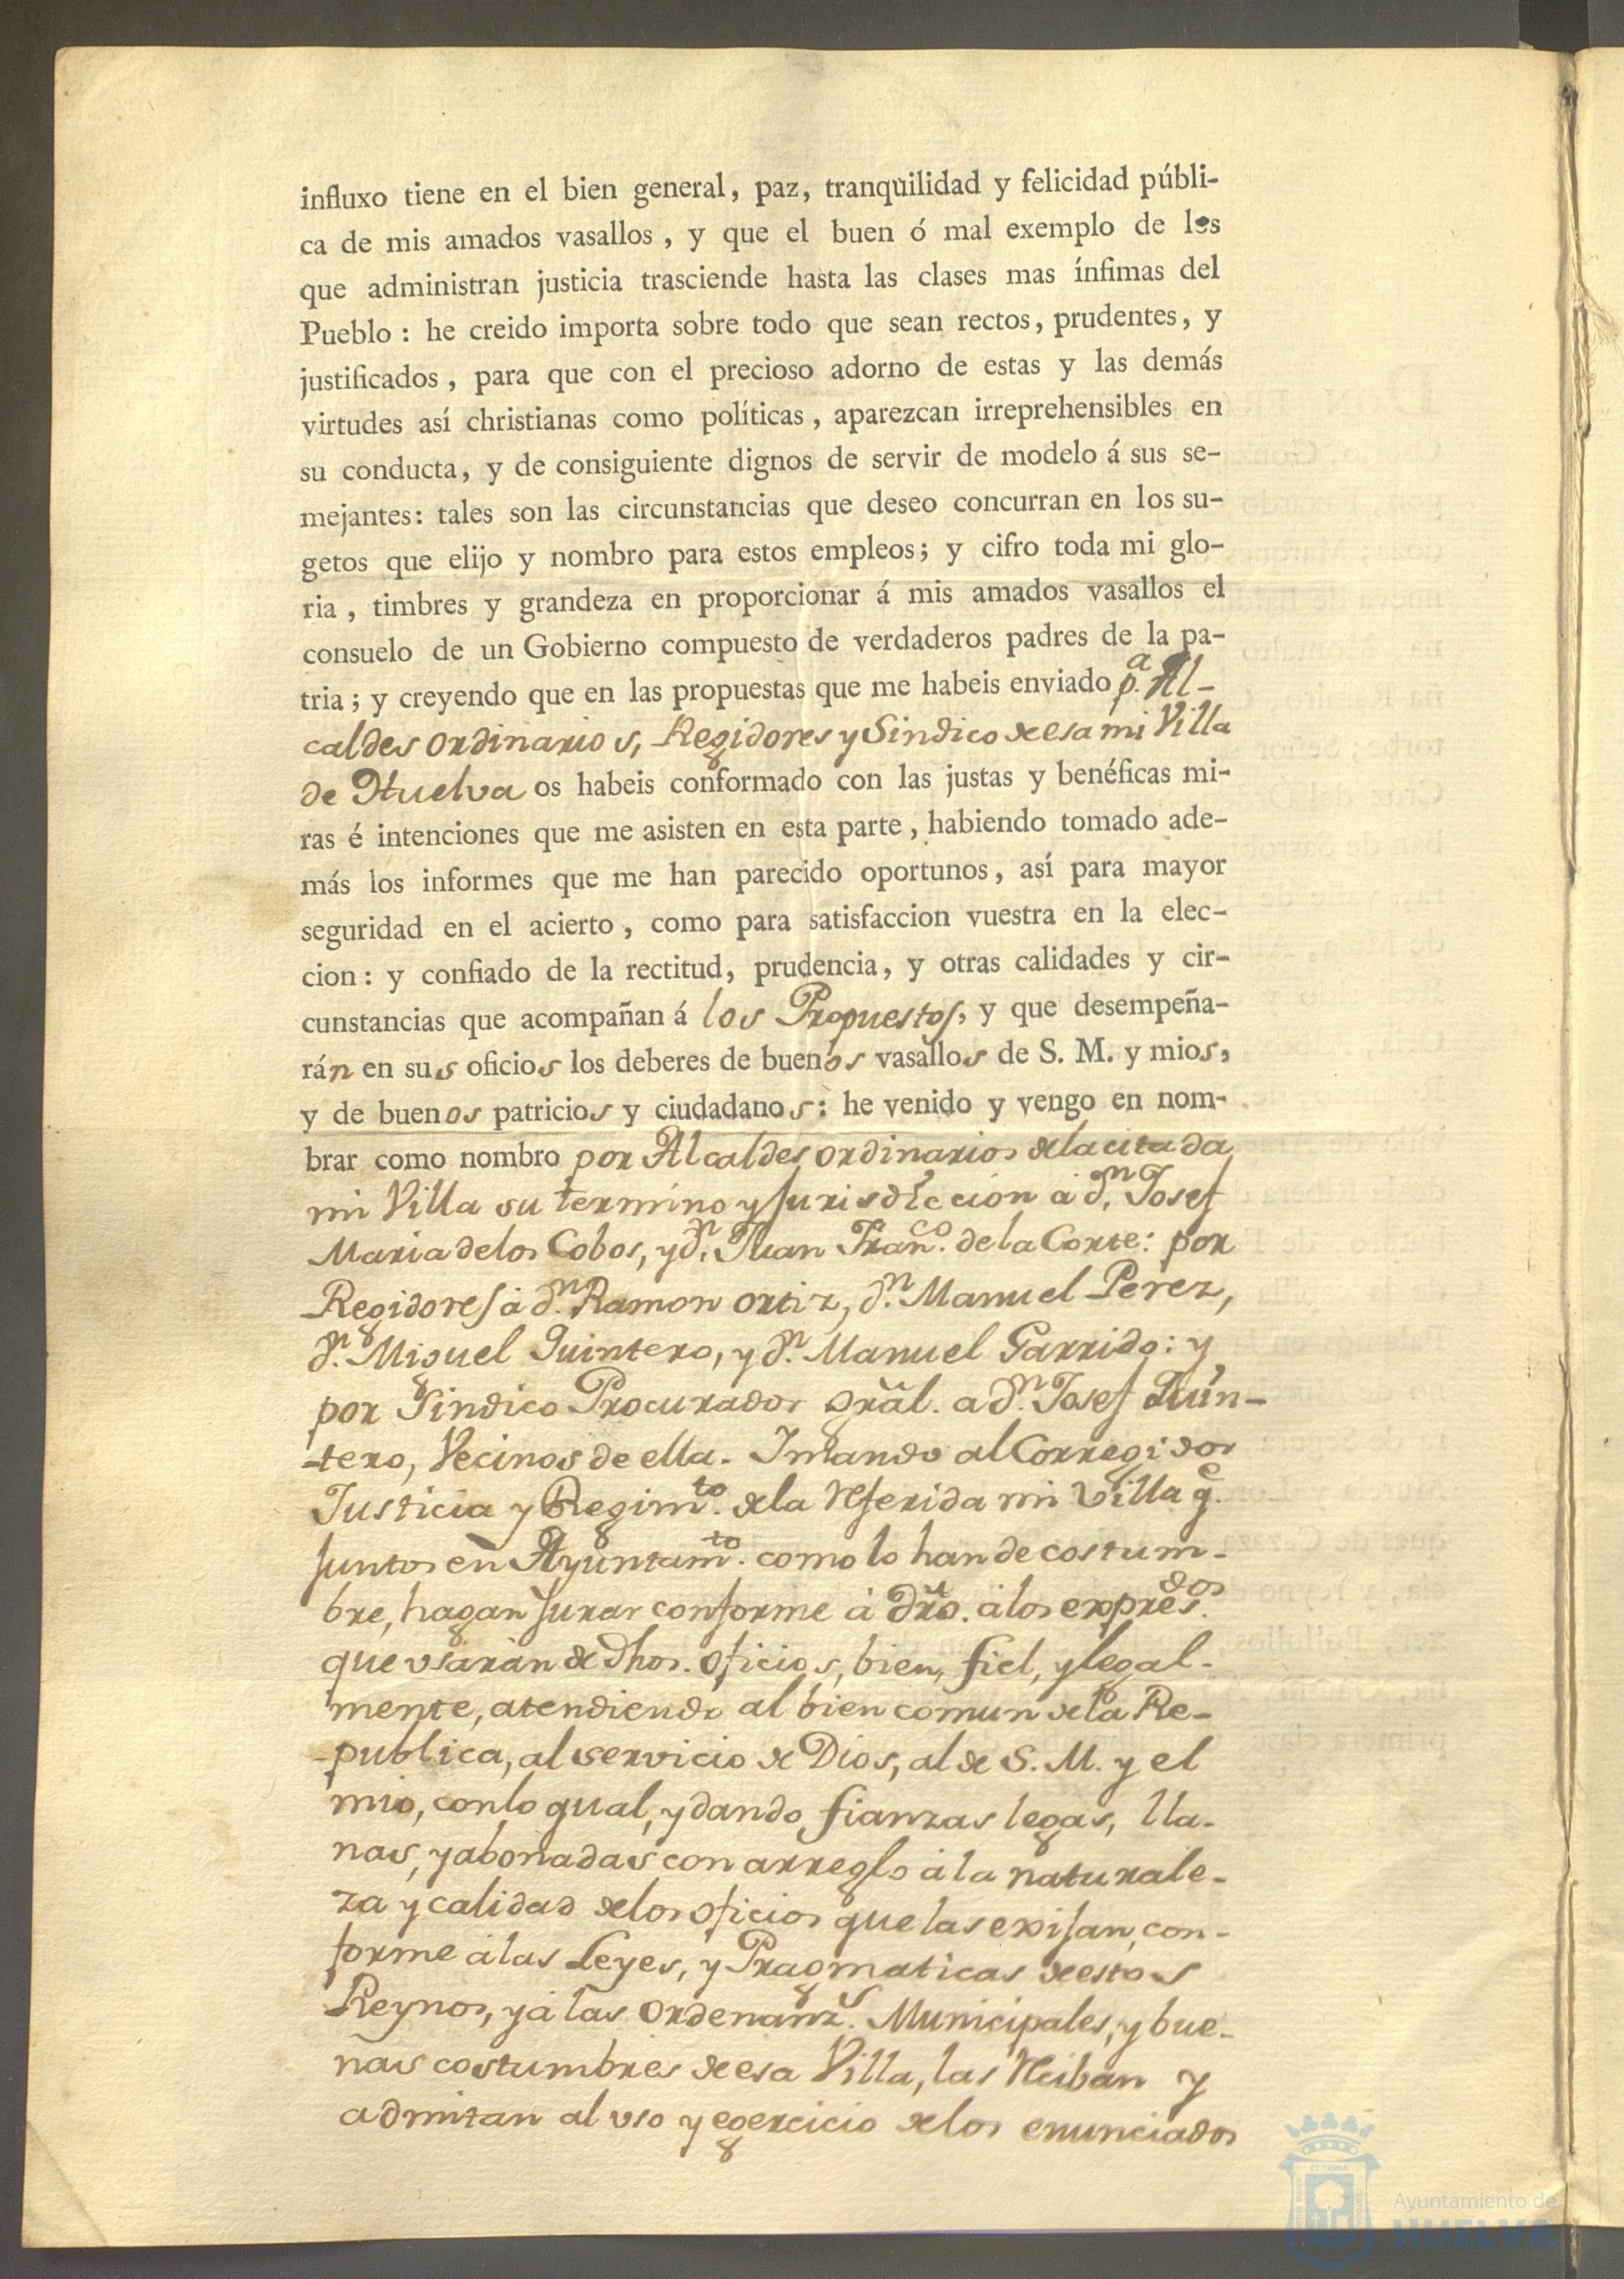 influxo tiene en el bien general, paz, tranqüilidad y felicidad públi-
ca de mis amados vasallos, y que el buen ó mal exemplo de los
que administran justicia trasciende hasta las clases mas ínfimas del
Pueblo: he creido importa sobre todo que sean rectos, prudentes, y
justificados, para que con el precioso adorno de estas y las demás
virtudes así christianas como políticas, aparezcan irreprehensibles en
su conducta, y de consiguiente dignos de servir de modelo á sus se-
mejantes: tales son las circunstancias que deseo concurran en los su-
getos que elijo y nombro para estos empleos; y cifro toda mi glo-
ria, timbres y grandeza en proporcionar á mis amados vasallos el
consuelo de un Gobierno compuesto de verdaderos padres de la pa-
tria; y creyendo que en las propuestas que me habeis enviado p.ª Al-
caldes ordinarios, Regidores y Sindico de esa mi Villa
de Huelva os habeis conformado con las justas y benéficas mi-
ras é intenciones que me asisten en esta parte, habiendo tomado ade-
más los informes que me han parecido oportunos, así para mayor
seguridad en el acierto, como para satisfaccion vuestra en la elec-
cion: y confiado de la rectitud, prudencia, y otras calidades y cir-
cunstancias que acompañan á los Propuestos, y que desempeña-
rán en sus oficios los deberes de buenos vasallos de S. M. y mios,
y de buenos patricios y ciudadanos: he venido y vengo en nom-
brar como nombro por Alcaldes ordinarios de la citada
mi Villa su termino y jurisdiccion á d.ⁿ Josef
Maria de los Cobos, y d.ⁿ Juan Fran.ᶜᵒ de la Corte: por
Regidores á d.ⁿ Ramon Ortiz, d.ⁿ Manuel Perez,
d.ⁿ Miguel Quintero, y d.ⁿ Manuel Garrido: y
por Sindico Procurador Grâl. a d.ⁿ Josef Quin-
tero, Vecinos de ella. Y mando al Corregidor
Justicia y Regim.ᵗᵒ de la referida mi Villa q.ᵉ
juntos en Ayuntam.ᵗᵒ como lo han de costum-
bre, hagan jurar conforme á dro. á los expres.ᵈᵒˢ
que usarán de dhos. oficios, bien, fiel, y legal-
mente, atendiendo al bien comun de la Re-
publica, al servicio de Dios, al de S. M. y el
mio, con lo qual, y dando fianzas legas, lla-
nas, y abonadas con arreglo á la naturale-
za y calidad de los oficios que las exijan, con-
forme á las Leyes, y Pragmaticas de estos
Reynos, y á las Ordenanz.ˢ Municipales, y bue-
nas costumbres de esa Villa, las reciban y
admitan al uso y egercicio de los enunciados
Ayuntamiento de
HUELVA